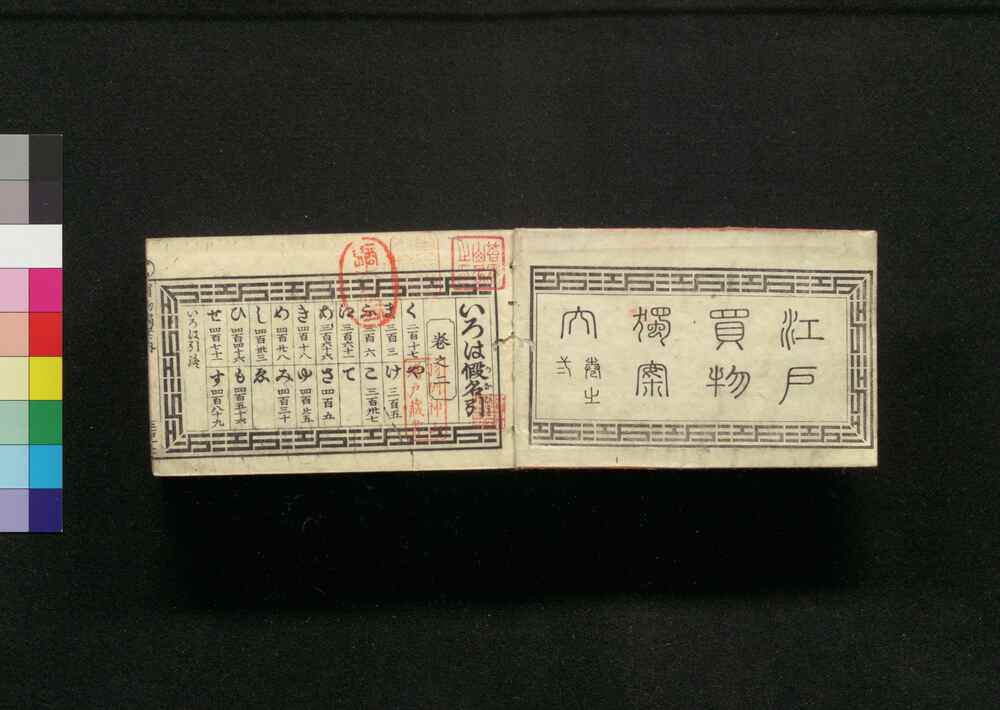 江戸
買物
獨案
内
巻之
弐
いろは假名引
巻之二
く 二百十七
や
ま 三百三
け 三百五
ふ 三百六
こ 三百卅七
江 三百六十一
て
あ 三百六十六
さ 四百五
き 四百十八
ゆ 四百廿五
め 四百廿八
み 四百三十
し 四百卅三
ゑ
ひ 四百四十六
も 四百五十六
せ 四百七十一
す 四百八十九
いろは引終